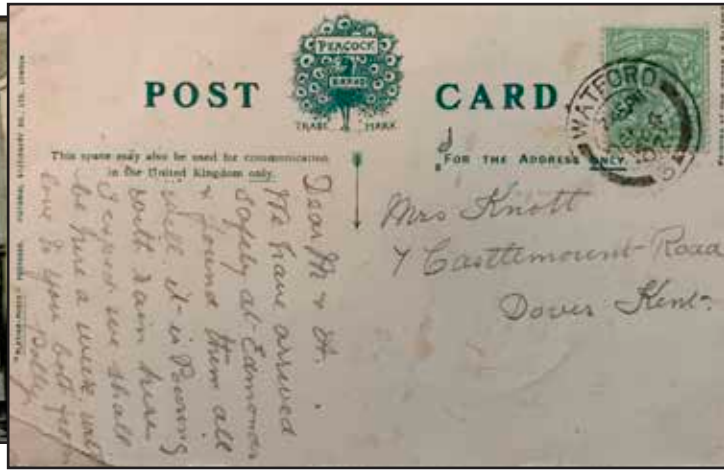 POST CARD
PEACOCK
BRAND
TRADE MARK
This space may also be used for communication
in the United Kingdom only.
FOR THE ADDRESS ONLY.
WATFORD
Dear M & 
We have arrived
safely at Edmonton
& found them all
well. it is Pouring
with rain here
I expect we shall
be here a week, with
love to you both from
Polly
Mrs Knott
7 Castlemount Road
Dover Kent.